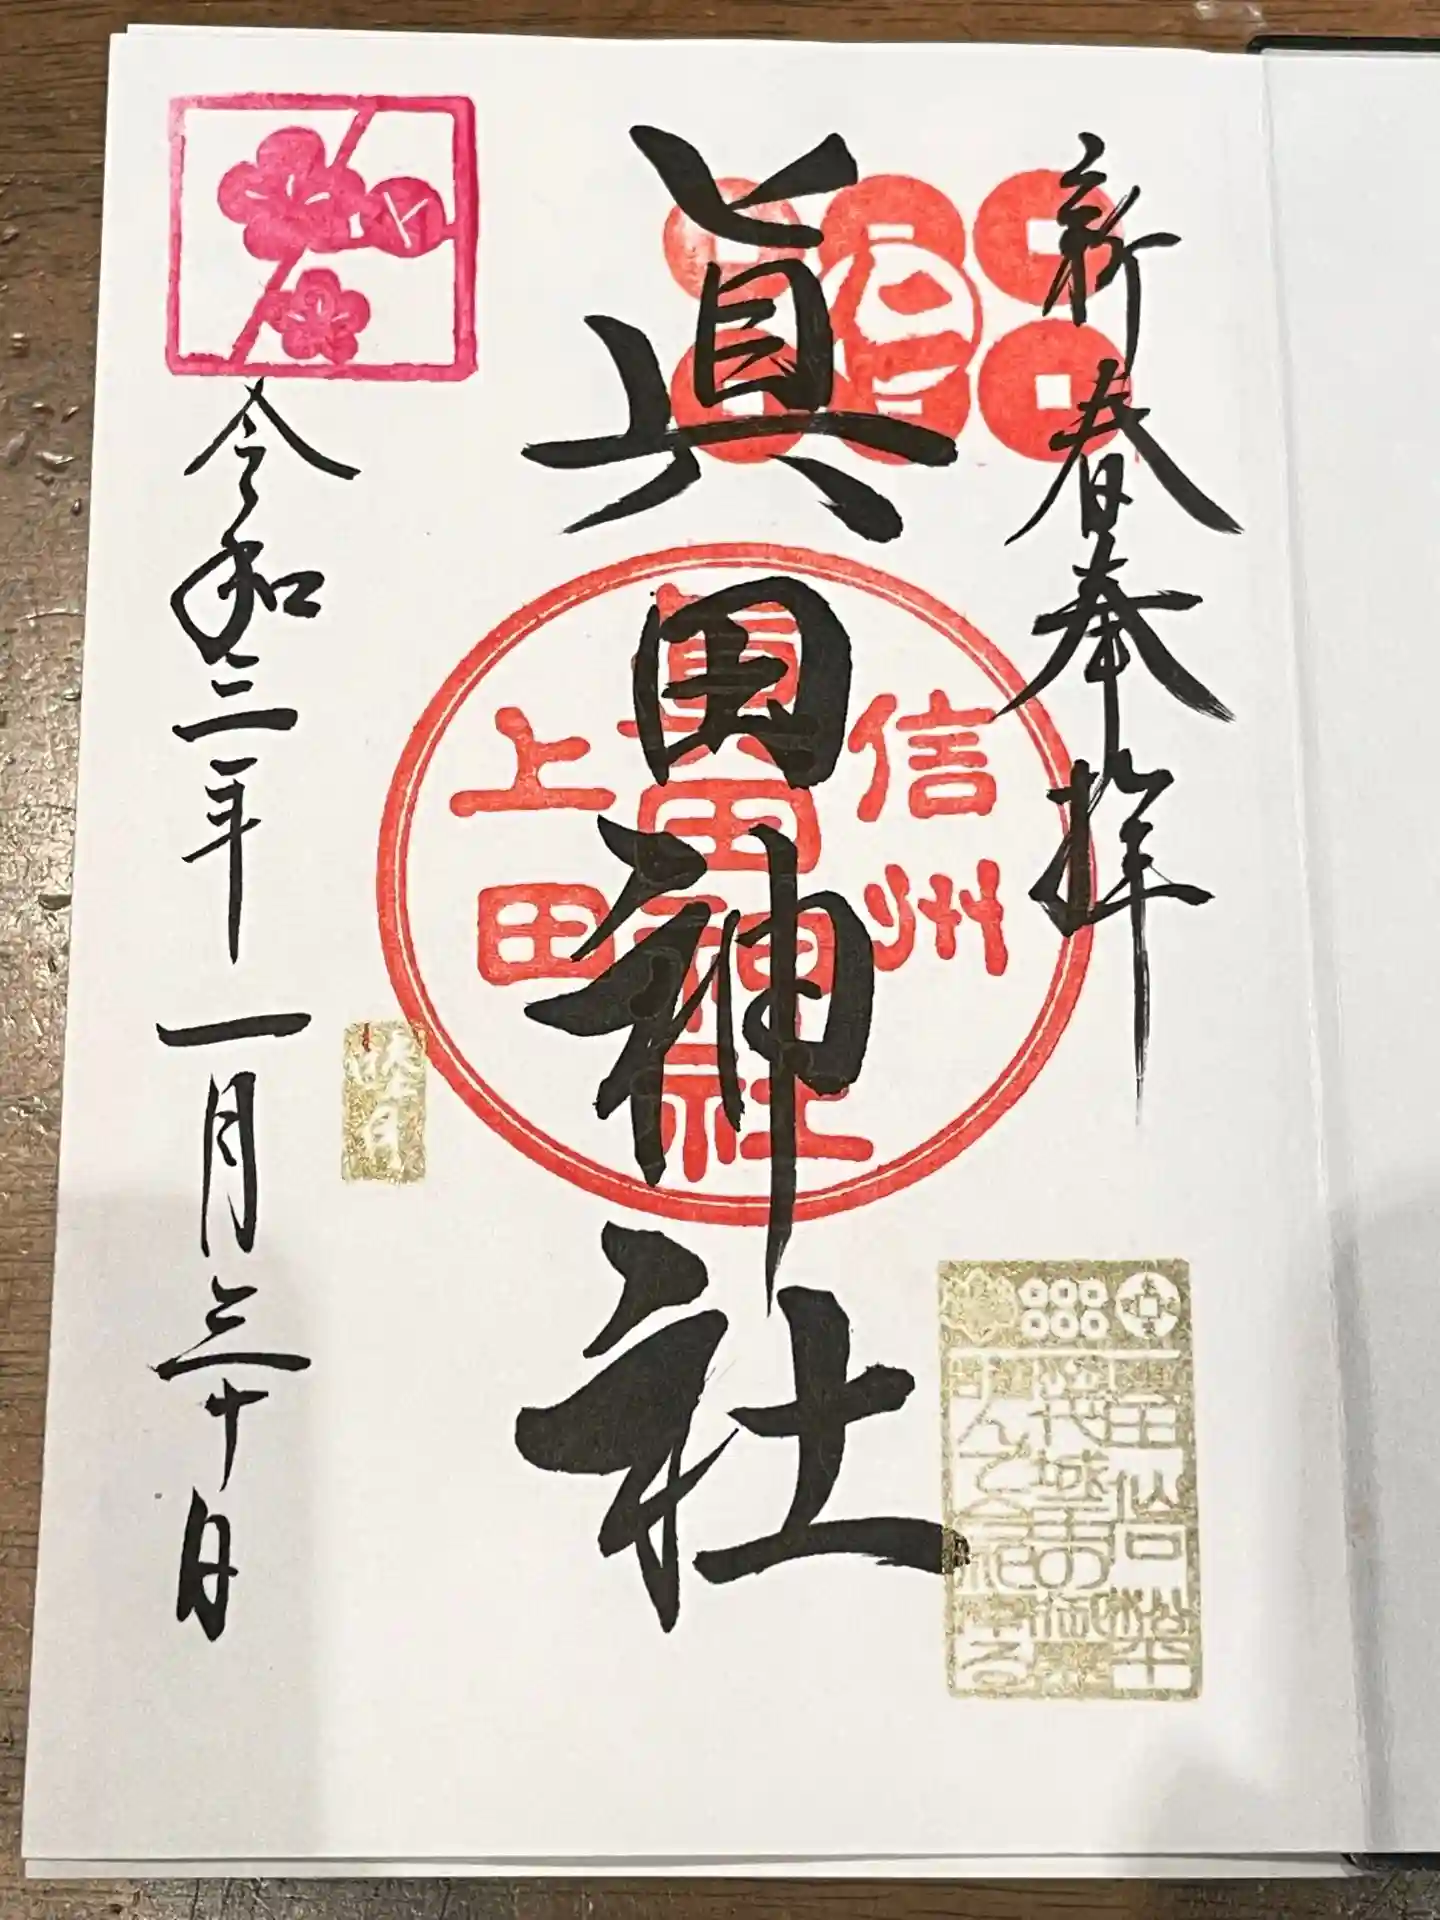 新春奉拝
眞田神社
信州
眞田神社
上田
睦月
令和三年一月三十日
仙石松平